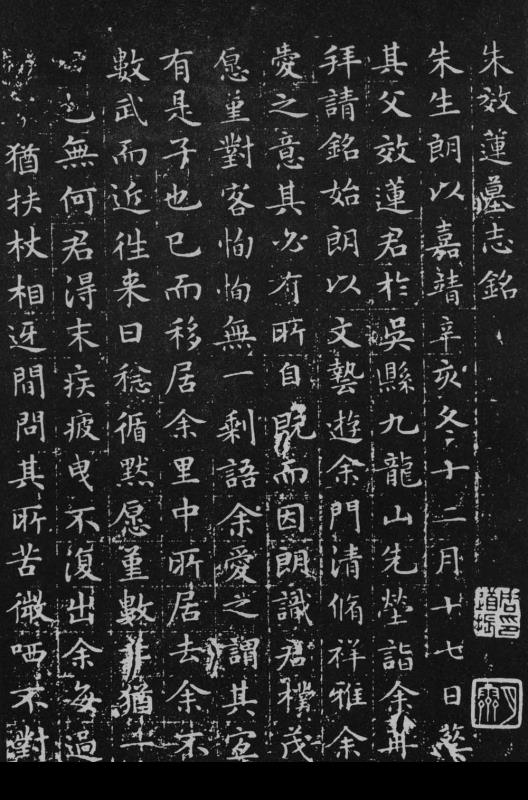 朱效蓮墓志銘
朱生朗以嘉靖辛亥冬十二月十七日葬
其父效蓮君於吳縣九龍山先塋詣余再
拜請銘始朗以文藝遊余門清脩祥雅余
愛之意其必有所自既而因朗識君樸茂
愿堇對客恂恂無一剩語余愛之謂其宜
有是子也已而移居余里中所居去余不
數武而近往来日稔循默愿堇數年猶一
日也無何君得末疾疲曳不復出余每過
猶扶杖相迓間問其所苦微哂不對